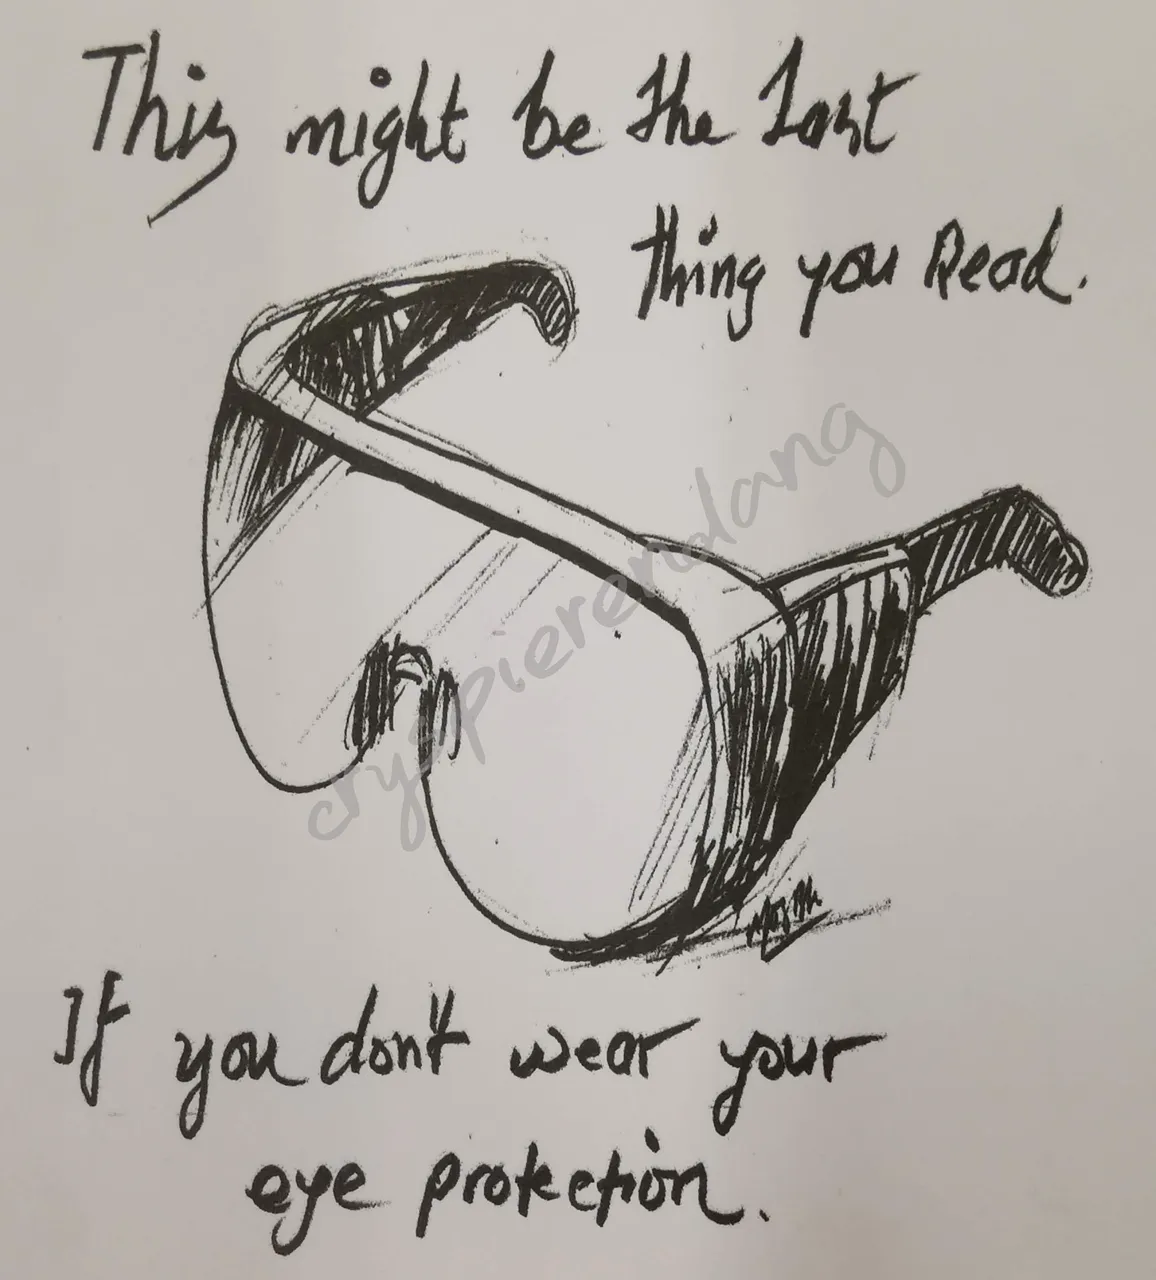 This might be the Last
thing you Read.
cryspierendang
If you don't wear your
eye protection.